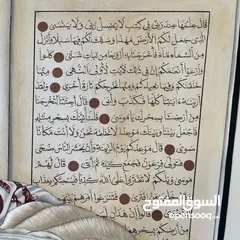 قال علمها عند ربي في كتب لا يضل ربي ولا ينسى
الذي جعل لكم الأرض مهدا وسلك لكم فيها سبلا وأنزل
من السماء ماء فأخرجنا به أزوجا من نبات شتى كلوا
وارعوا أنعمكم إن في ذلك لأيت لأولي النهى منها
خلقنكم وفيها نعيدكم ومنها نخرجكم تارة أخرى
ولقد أرينه ءايتنا كلها فكذب وأبى قال أجئتنا لتخرجنا
من أرضنا بسحرك يموسى فلنأتينك بسحر مثله
فاجعل بيننا وبينك موعدا لا نخلفه نحن ولا أنت مكانا
سوى قال موعدكم يوم الزينة وأن يحشر الناس
ضحى فتولى فرعون فجمع كيده ثم أتى قال لهم
موسى ويلكم لا تفتروا على الله كذبا فيسحتكم بعذاب
افترى فتنزعوا أمرهم بينهم
قالوا إن هذن
من أرضكم بسحرهما
السوق المفتوح
opensooq.com